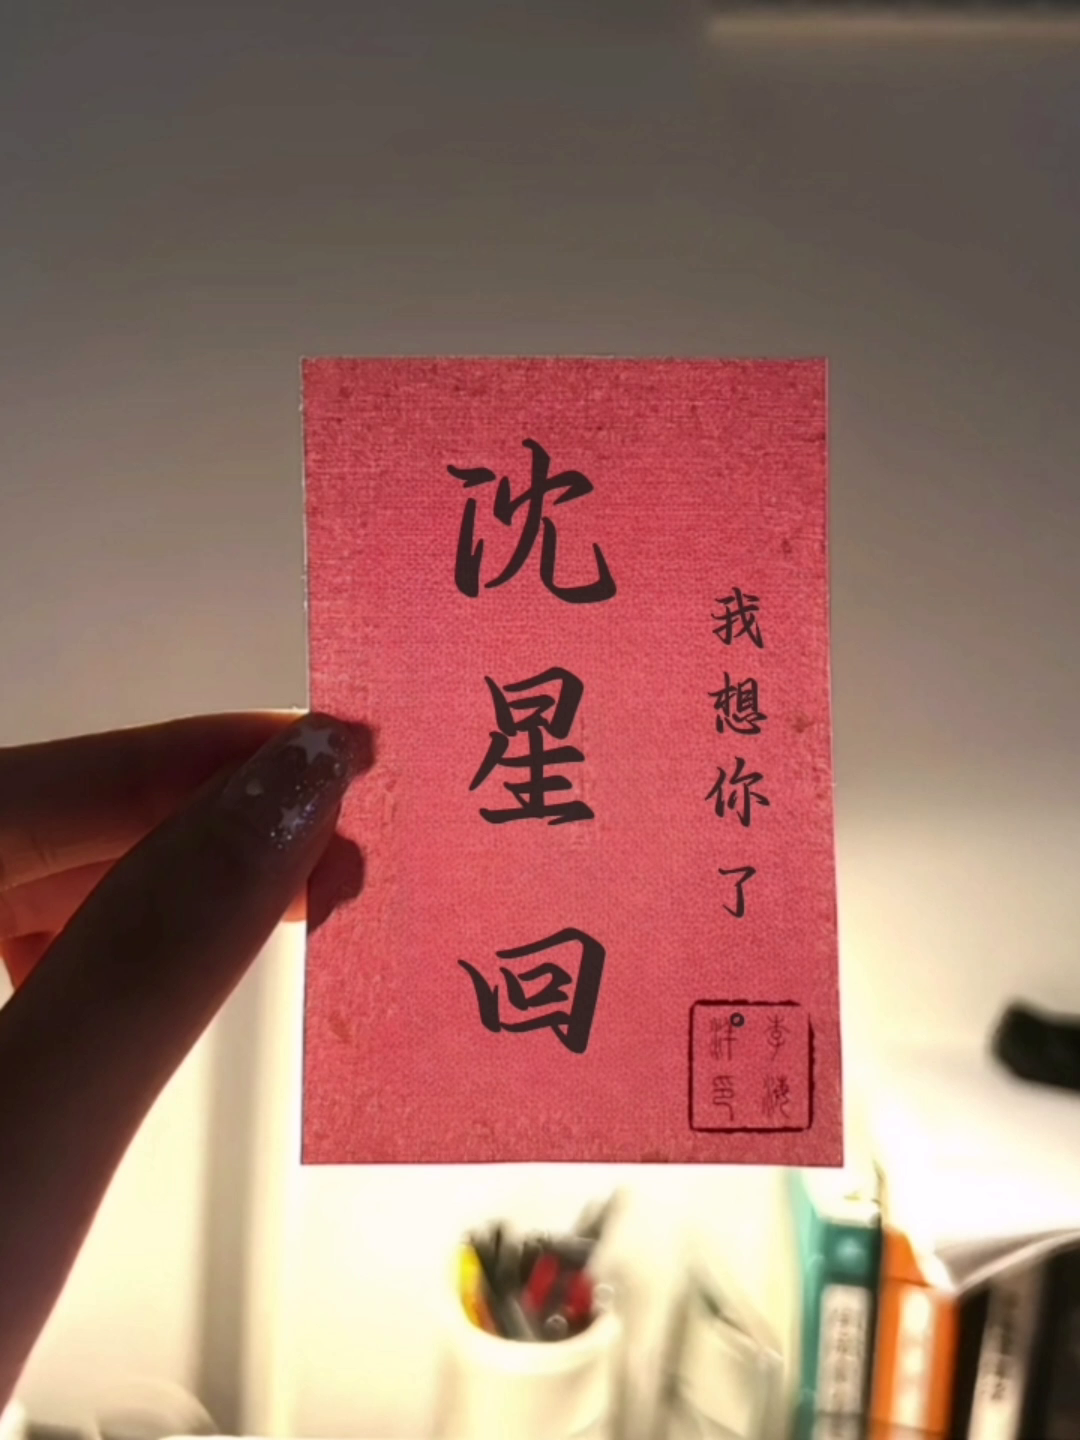 沈星回
我想你了。